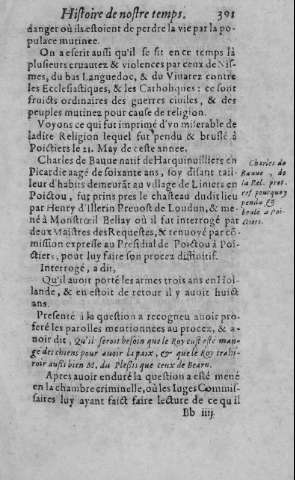 Histoire de nostre temps. 391
danger où ils estoient de perdre la vie par la po-
pulace mutinee.
On a escrit aussi qu'il se fit en ce temps là
plusieurs cruautez & violences par ceux de Nis-
mes, du bas Languedoc, & du Viuarez contre
les Ecclesiastiques, & les Catholiques : ce sont
fruicts ordinaires des guerres ciuiles, & des
peuples mutinez pour cause de religion.
Voyons ce qui fut imprimé d'vn miserable de
ladite Religion lequel fut pendu & bruslé à
Poictiers le 21. May de ceste annee.
Charles de Baune natif de Harquinuilliers en
Picardie aagé de soixante ans, soy disant tail-
leur d'habits demeurāt au village de Liniers en
Poictou, fut prins prez le chasteau dudit lieu
par Henry d'Illerin Preuost de Loudun, & me-
né à Monstrœil Bellay où il fut interrogé par
deux Maistres des Requestes, & renuoyé par cō-
mission expresse au Presidial de Poictou à Poi-
ctiers, pour luy faire son procez diffinitif.
Charles de
Baune, de
la Rel. pret.
ref. pourquoy
pendu &
brulé à Poi-
ctiers.
Interrogé, a dit,
Qu'il auoit porté les armes trois ans en Hol-
lande, & en estoit de retour il y auoit huict
ans.
Presenté à la question a recogneu auoir pro-
feré les parolles mentionnees au procez, & a-
uoir dit, Qu'il seroit besoin que le Roy eust esté man-
gé des chiens pour auoir la paix, & que le Roy trahis-
soit aussi bien M. du Plessis que ceux de Bearn.
Apres auoir enduré la question a esté mené
en la chambre criminelle, où les Iuges Commis-
saires luy ayant faict faire lecture de ce qu'il
Bb iiij